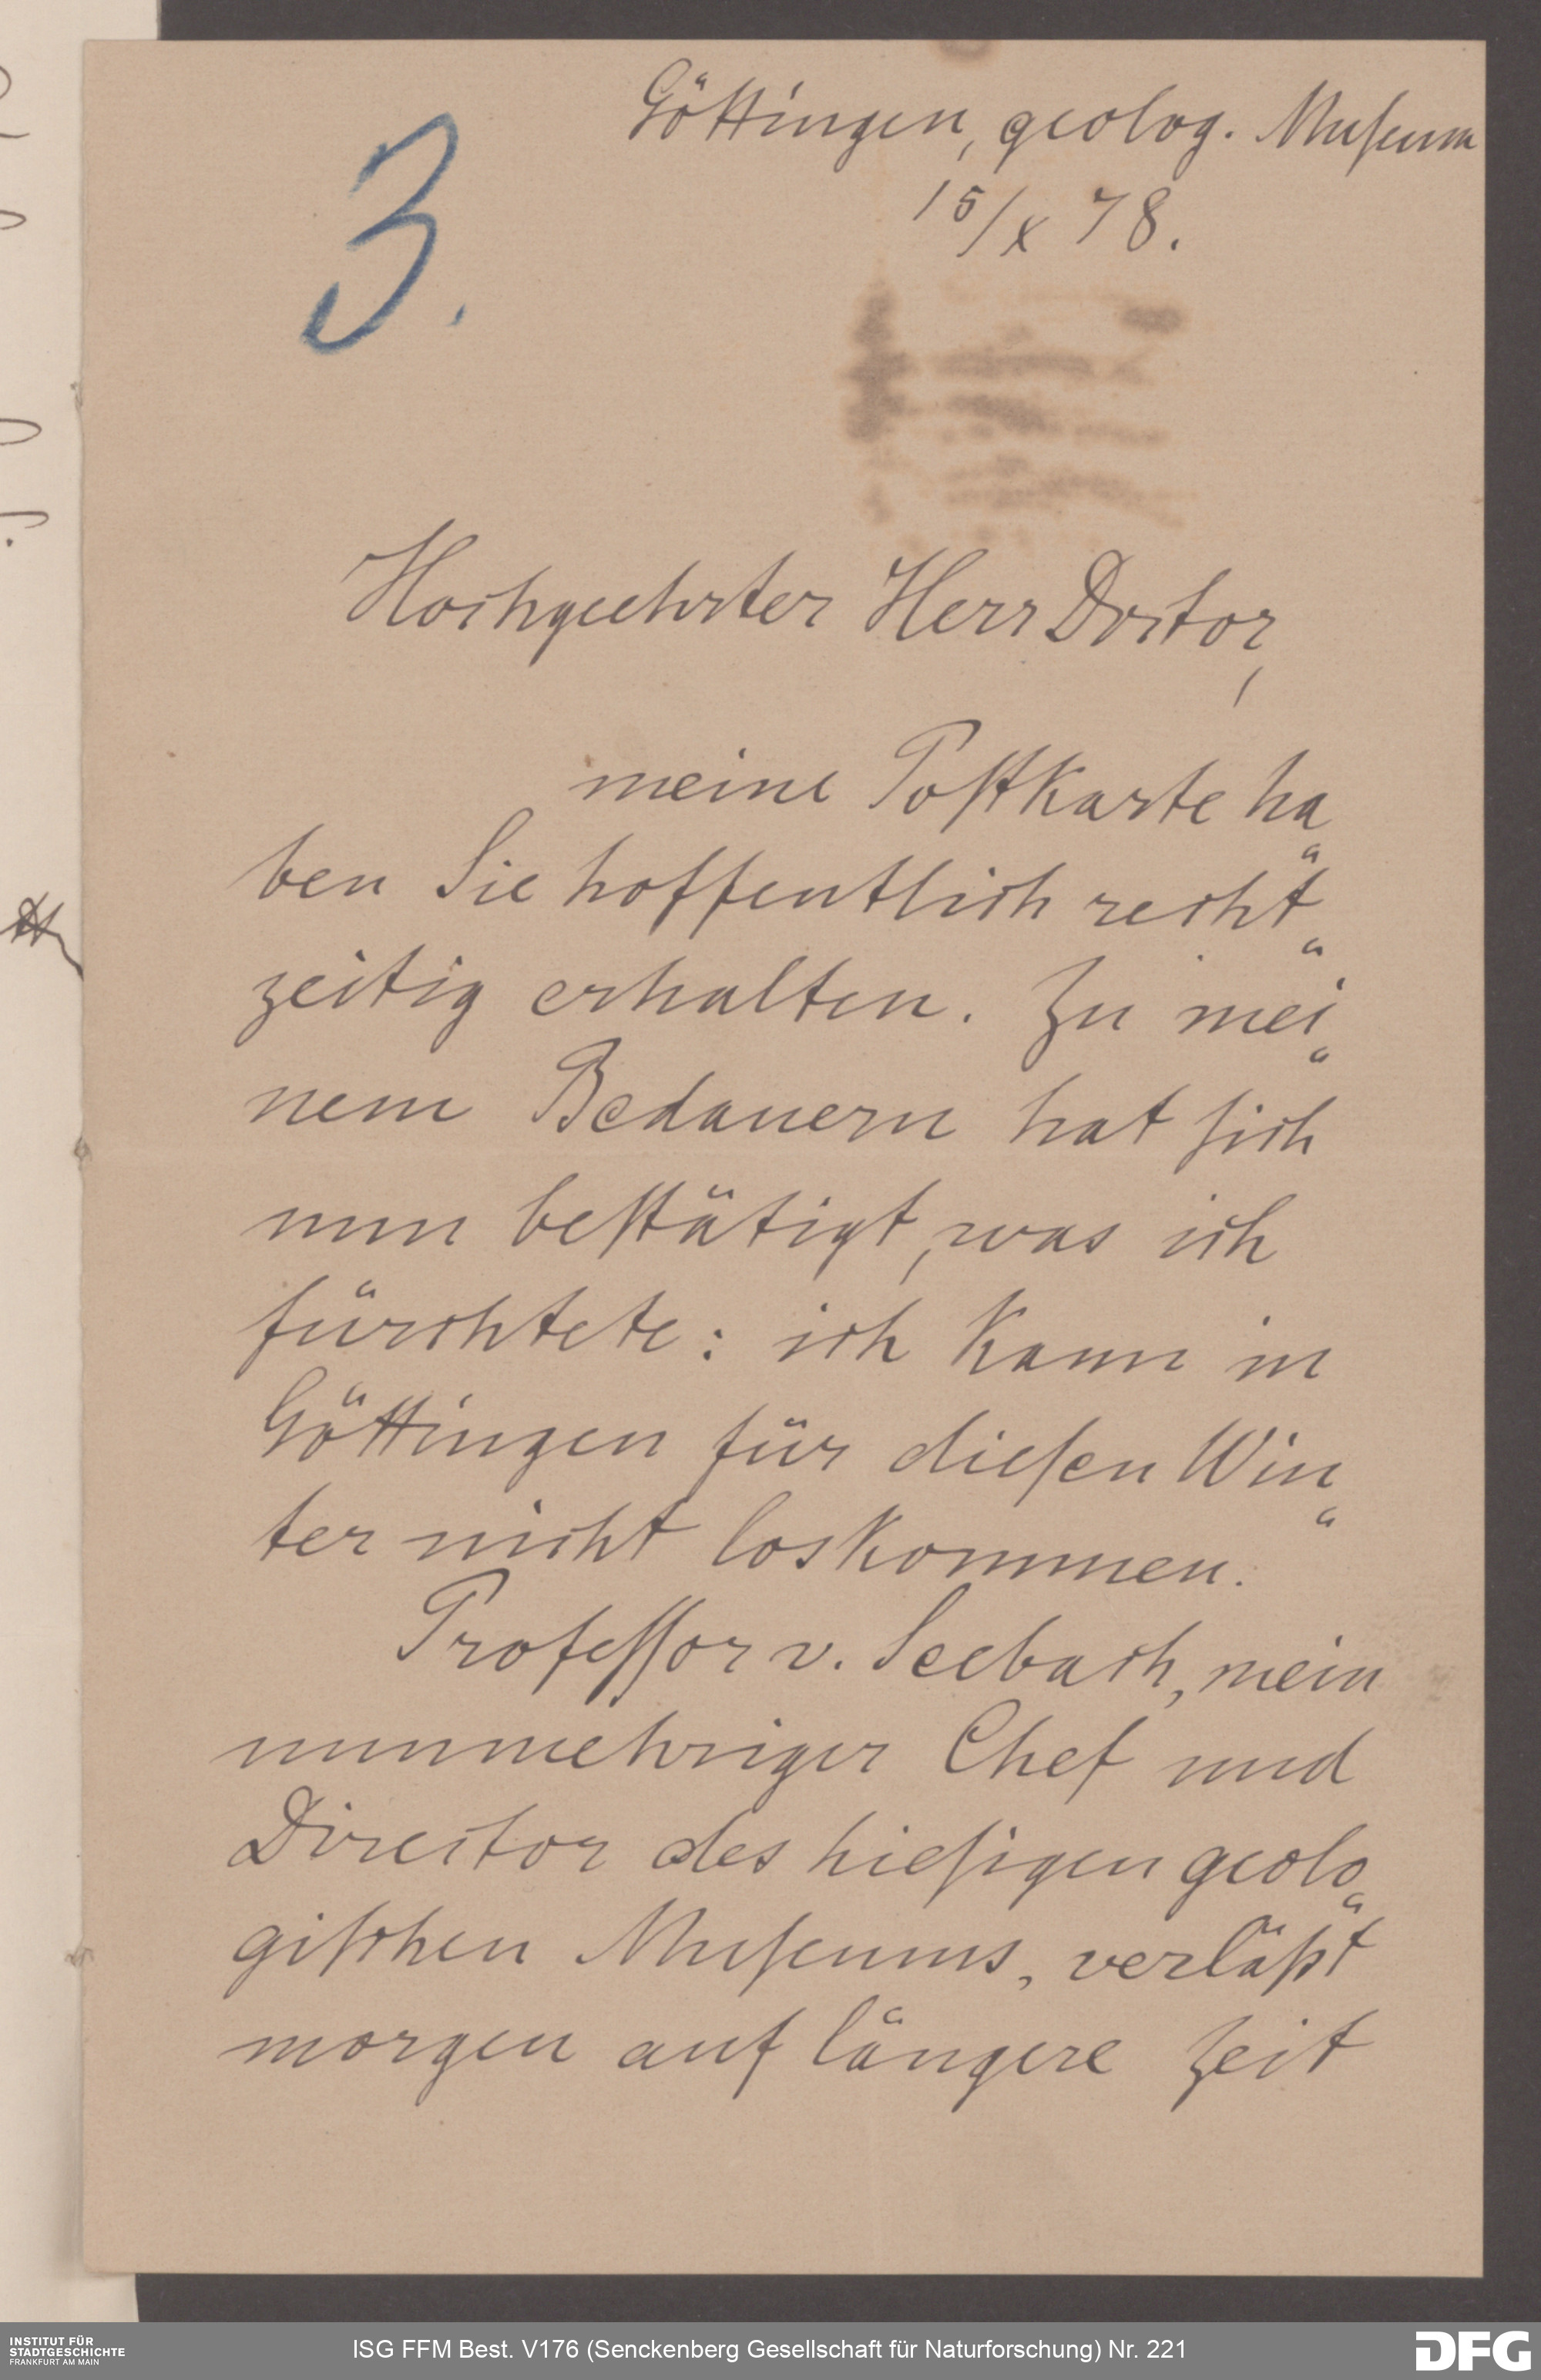 Göttingen, geolog. Museum
15/X 78.
3.
Hochgeehrter Herr Doctor,
meine Postkarte ha„
ben Sie hoffentlich recht„
zeitig erhalten. Zu mei„
nem Bedauern hat sich
nun bestätigt, was ich
fürchtete: ich kann in
Göttingen für diesen Win„
ter nicht loskommen.
Professor v. Seebach, mein
nunmehriger Chef und
Director des hiesigen geolo„
gischen Museums, verläßt
morgen auf längere Zeit
INSTITUT FÜR
STADTGESCHICHTE
FRANKFURT AM MAIN
ISG FFM Best. V176 (Senckenberg Gesellschaft für Naturforschung) Nr. 221
DFG